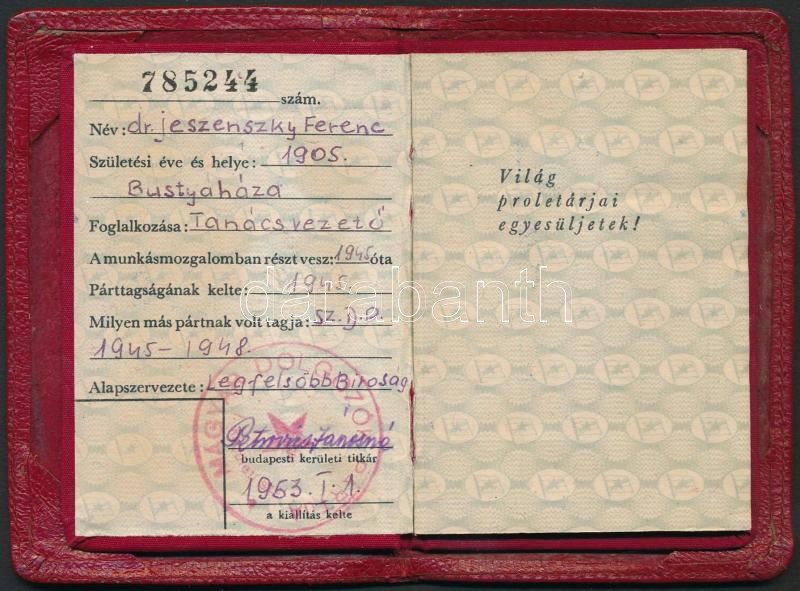 785244
szám.
Név: dr. jeszenszky Ferenc
Születési éve és helye: 1905.
Bustyaháza
Foglalkozása: Tanácsvezető
A munkásmozgalomban részt vesz: 1945 óta
Párttagságának kelte: 1945.
Milyen más pártnak volt tagja: Sz.D.P.
1945-1948.
Alapszervezete: Legfelsőbb Biróság
budapesti kerületi titkár
1953. I. 1.
a kiállítás kelte
Világ
proletárjai
egyesüljetek!
darabanth
MAGYAR DOLGOZÓK